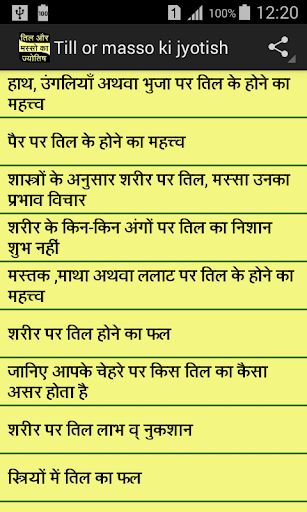 100
12:20
तिल और
मस्सो का
ज्योतिष
Till or masso ki jyotish
हाथ, उंगलियाँ अथवा भुजा पर तिल के होने का
महत्त्व
पैर पर तिल के होने का महत्त्व
शास्त्रों के अनुसार शरीर पर तिल, मस्सा उनका
प्रभाव विचार
शरीर के किन-किन अंगों पर तिल का निशान
शुभ नहीं
मस्तक ,माथा अथवा ललाट पर तिल के होने का
महत्त्व
शरीर पर तिल होने का फल
जानिए आपके चेहरे पर किस तिल का कैसा
असर होता है
शरीर पर तिल लाभ व् नुकशान
स्त्रियों में तिल का फल